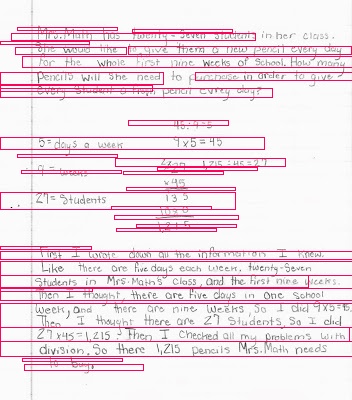 Mrs. Math has twenty-seven students in her class.
She would like to give them a new pencil every day
for the whole first nine weeks of school. How many
pencils will she need to purchase in order to give
every student a fresh pencil every day?
45÷9=5
5=days a week 9x5=45
9=weeks 27 1,215÷45=27
x45
27=students 135
1080
1,215
First I wrote down all the information I knew.
Like there are five days each week, twenty-seven
students in Mrs. Math's class, and the first nine weeks.
Then I thought, there are five days in one school
week, and there are nine weeks, so I did 9x5=45.
Then I thought there are 27 students, so I did
27x45=1,215. Then I checked all my problems with
division. So there 1,215 pencils Mrs. Math needs
to buy.